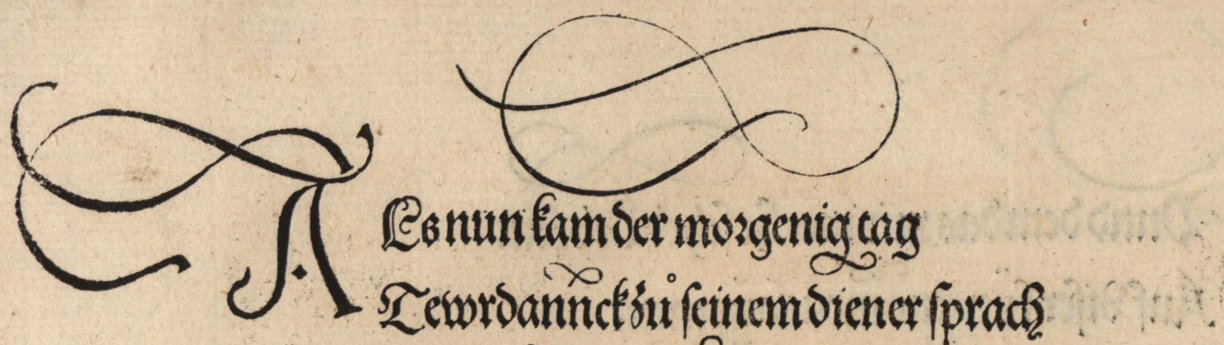 ALs nun kam der morgenig tag
Tewrdannck zů seinem diener sprach